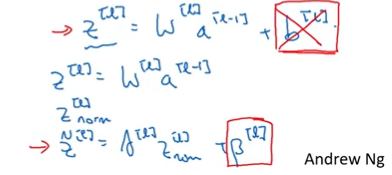 → z^[l] = W^[l] a^[l-1] + b^[l].
z^[l] = W^[l] a^[l-1]
z^[l]_norm
→ z̃^[l] = γ^[l] z^[l]_norm + β^[l]
Andrew Ng